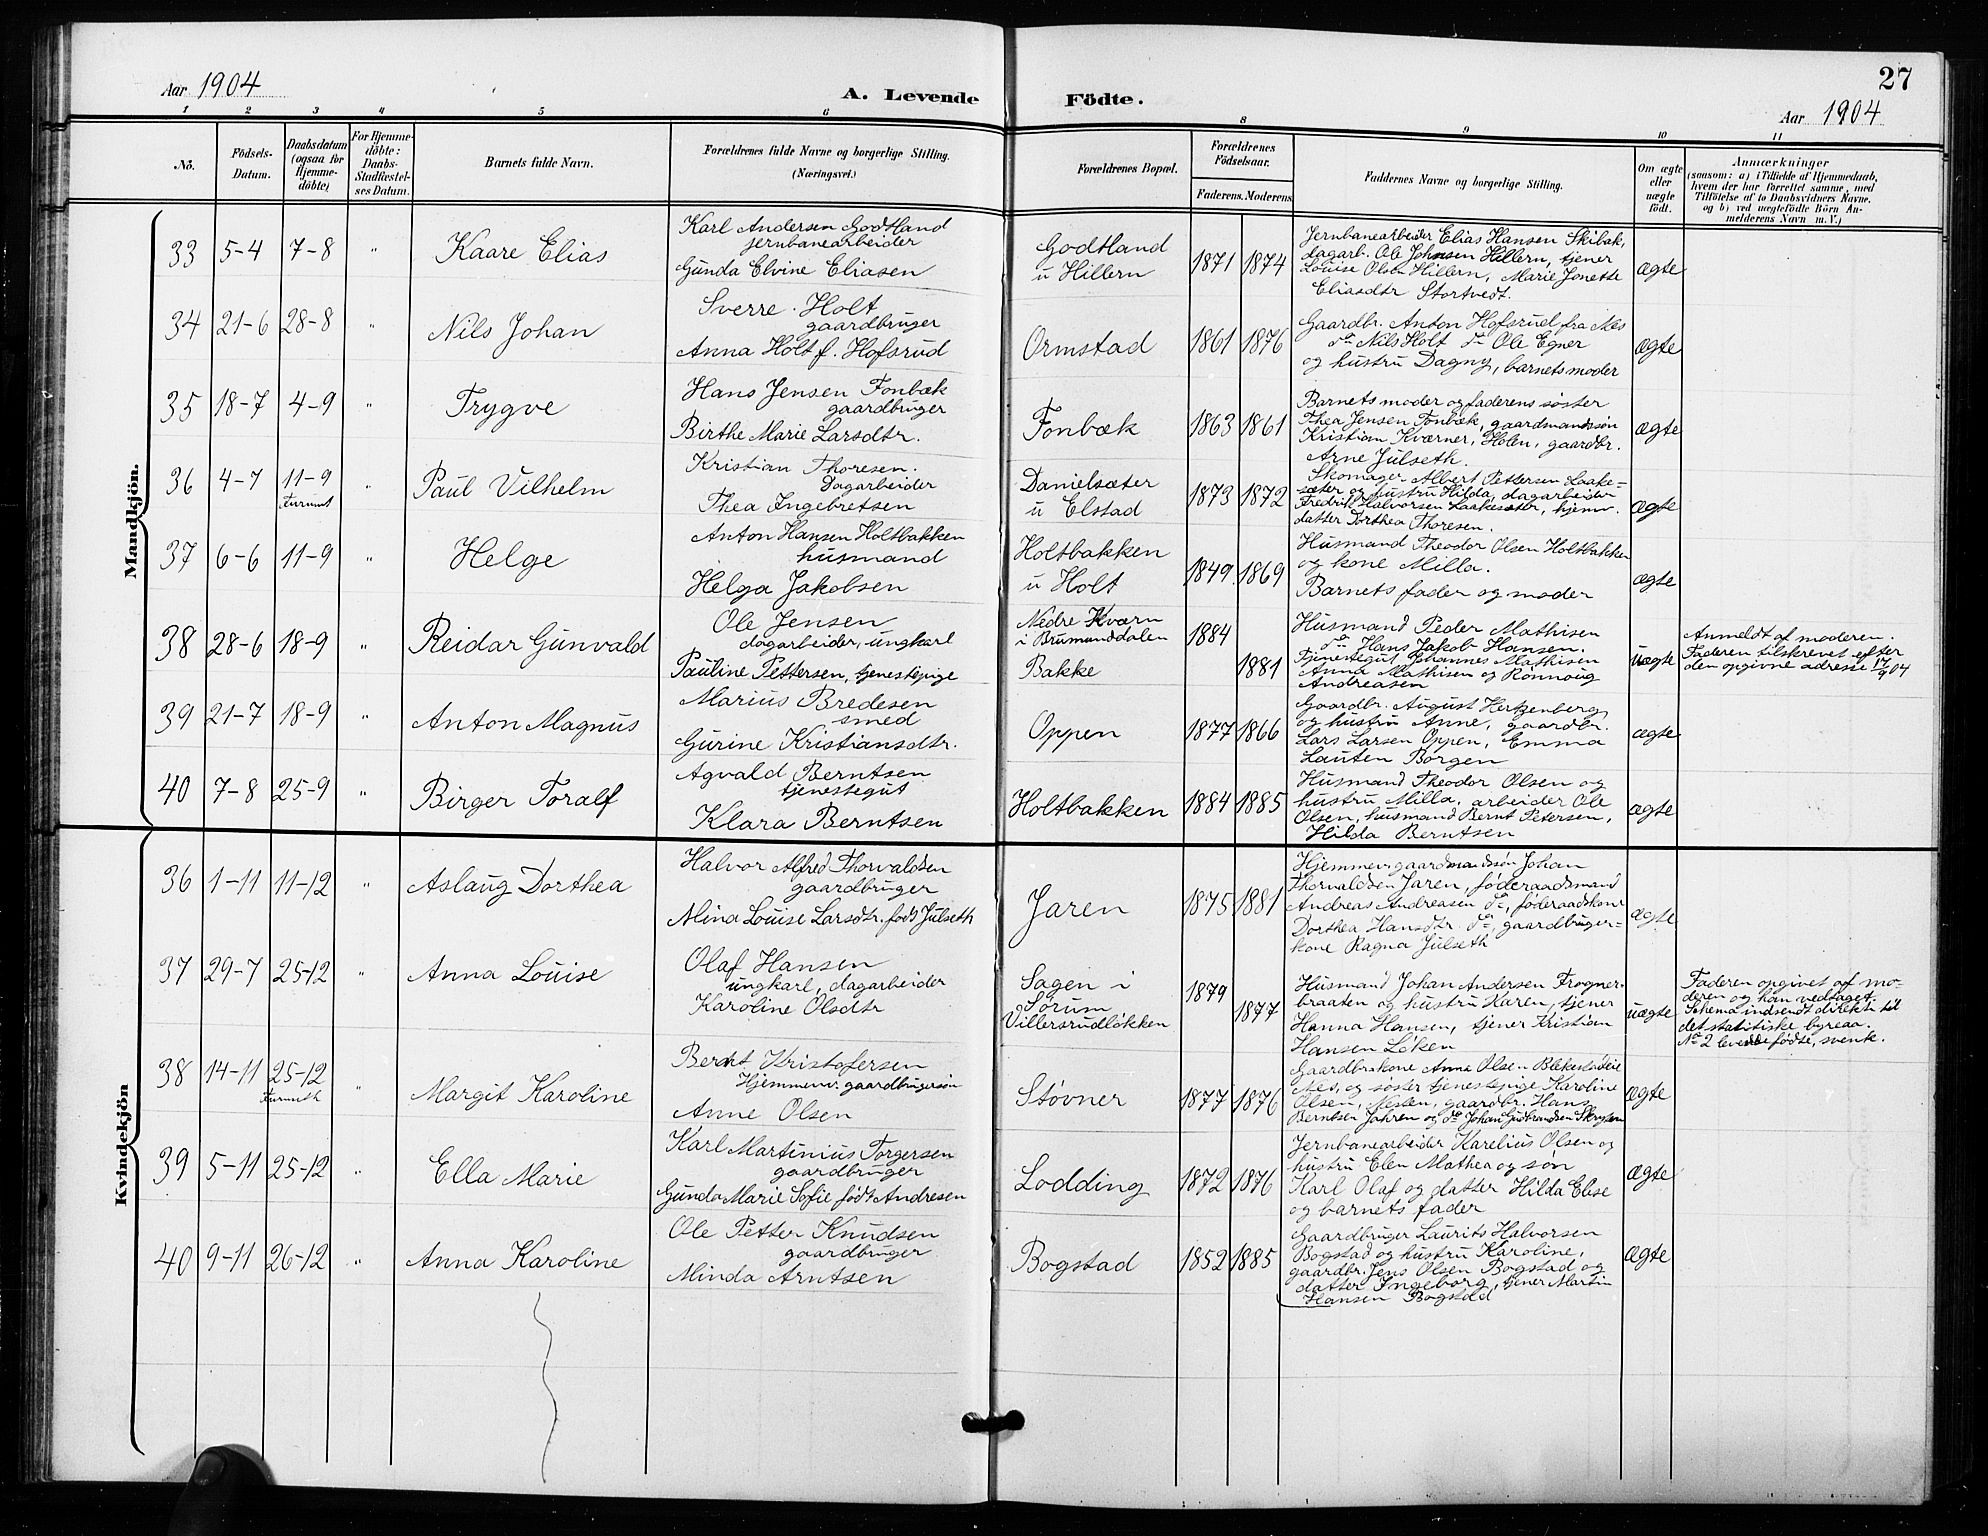 27
Aar 1904
A. Levende Födte.
Aar 1904
1 2 3 4 5 6 8 9 10 11
No.
Födsels-
Datum.
Daabsdatum
(ogsaa for
Hjemme-
döbte)
For Hjemme-
döbte:
Daabs-
Stadfæstel-
ses Datum.
Barnets fulde Navn.
Forældrenes fulde Navne og borgerlige Stilling.
(Næringsvei.)
Forældrenes Bopæl.
Forældrenes
Födselsaar.
Faderens. Moderens.
Faddernes Navne og borgerlige Stilling.
Om ægte
eller
uægte
födt.
Anmærkninger
(saasom: a) i Tilfælde af Hjemmedaab,
hvem der har forrettet samme, med
Tilföielse af to Daabsvidners Navne.
og b) ved uægtefödte Börn An-
melderens Navn m. V.)
Mandkjön.
33 5-4 7-8 " Kaare Elias
Karl Andersen Godtland
jernbanearbeider
Gunda Elvine Eliasen
Godtland
u Hillern
1871 1874
Jernbanearbeider Elias Hansen Skibak,
dagarb. Ole Johnsen Hillern, tjener
Louise Olsen Hillern, Marie Jonette
Eliasdtr Stortvedt.
ægte
34 21-6 28-8 " Nils Johan
Sverre Holt
gaardbruger
Anna Holt f. Hofsrud
Ormstad
1861 1876
Gaardbr. Anton Hofsrud fra Næs
do Nils Holt do Ole Egner
og hustru Dagny, barnets moder
ægte
35 18-7 4-9 " Trygve
Hans Jensen Fonbæk
gaardbruger
Birthe Marie Larsdtr.
Fonbæk
1863 1861
Barnets moder og faderens søster
Thea Jensen Fonbæk, gaardmandssøn
Kristian Kværner, Holen, gaardbr.
Arne Julseth.
ægte
36 4-7 11-9 " Paul Vilhelm
Furunæt
Kristian Thoresen.
Dagarbeider
Thea Ingebretsen
Danielsæter
u Elstad
1873 1872
Skomager Albert Pettersen Laake-
sæter og hustru Hilda, dagarbeider
Fredrik Halvorsen Laakesæter, hjemv.
datter Dorthea Thoresen.
ægte
37 6-6 11-9 " Helge
Anton Hansen Holtbakken
husmand
Helga Jakobsen
Holtbakken
u Holt
1849 1869
Husmand Theodor Olsen Holtbakken
og kone Milla.
Barnets fader og moder
ægte
38 28-6 18-9 " Reidar Gunvald
Ole Jensen
dagarbeider, ungkarl
Pauline Pettersen, tjenestepige
Nedre Kværn
i Brumunddalen
Bakke
1884
1881
Husmand Peder Mathisen
do Hans Jakob Hansen.
Tjenestegut Johannes Mathisen
Anna Mathisen og Ronnoug
Andreasen
uægte
Anmeldt af moderen.
Faderen tilskrevet efter
den opgivne adresse 17/9 04
39 21-7 18-9 " Anton Magnus
Marius Bredesen
smed
Gurine Kristiansdtr.
Oppen
1877 1866
Gaardbr. August Hertzenberg
og hustru Anne, gaardbr.
Lars Larsen Oppen, Emma
Lauten Borgen
ægte
40 7-8 25-9 " Birger Toralf
Agvald Berntsen
tjenestegut
Klara Berntsen
Holtbakken
1884 1885
Husmand Theodor Olsen og
hustru Milla, arbeider Ole
Olsen, husmand Bernt Petersen,
Hilda Berntsen
ægte
Kvindekjön
36 1-11 11-12 " Aslaug Dorthea
Halvor Alfred Thorvaldsen
gaardbruger
Mina Louise Larsdtr. født Julseth
Jaren
1875 1881
Hjemmev. gaardmandssøn Johan
Thorvaldsen Jaren, føderaadsmand
Andreas Andreasen do, føderaadskone
Dorthea Hansdtr do, gaardbruger-
kone Ragna Julseth
ægte
37 29-7 25-12 " Anna Louise
Olaf Hansen
ungkarl, dagarbeider
Karoline Olsdtr
Sagen i
Sørum
Villersrudløkken
1879
1877
Husmand Johan Andersen Frogner-
braaten og hustru Karen, tjener
Hanna Hansen, tjener Kristian
Hansen Løken
uægte
Faderen opgivet af mo-
deren og han vedtaget
Schema indsendt direkte til
det statistiske byreaa.
No 2 levende fødte, svenk.
38 14-11 25-12 " Margit Karoline
Furuseth
Bernt Kristofersen
Hjemmev. gaardbrugersøn
Anne Olsen
Støvner
1877 1876
Gaardbr.kone Anna Olsen
Næs, og søster tjenestepige Karoline
Olsen, Næsten, gaardbr. Hans
Berntsen Jahren og do Johan Gudbrandsen
ægte
39 5-11 25-12 " Ella Marie
Karl Martinius Torgersen
gaardbruger
Gunda Marie Sofie født Andresen
Lodding
1872 1876
Jernbanearbeider Karelius Olsen og
hustru Elen Mathea og søn
Karl Olaf og datter Hilda Elise
og barnets fader
ægte
40 9-11 26-12 " Anna Karoline
Ole Petter Knudsen
gaardbruger
Minda Arntsen
Bogstad
1852 1885
Gaardbruger Laurits Halvorsen
Bogstad og hustru Karoline,
gaardbr. Jens Olsen Bogstad og
datter Ingeborg, tjener Martin
Hansen Bogstad
ægte